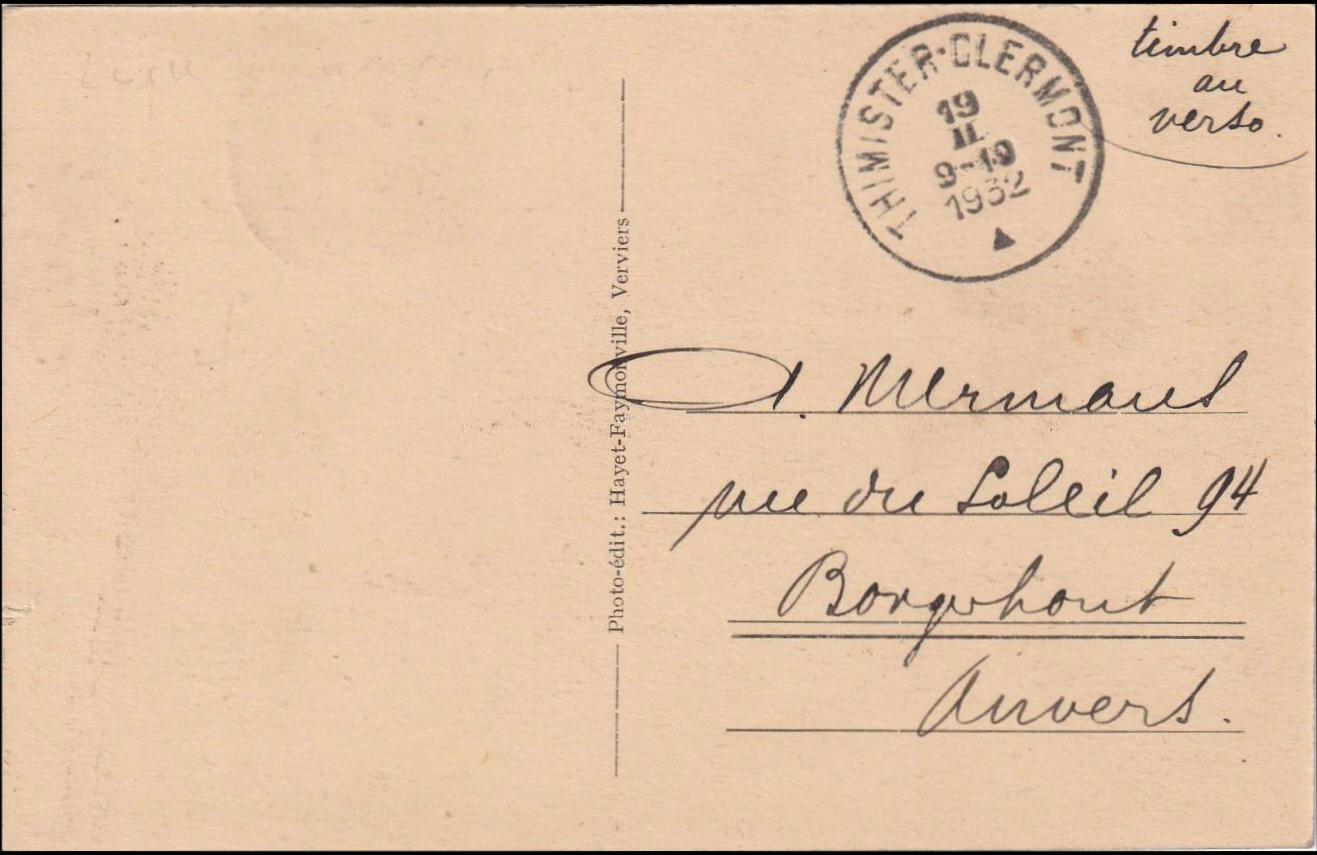 THIMISTER-CLERMONT
19
II
9-10
1932
timbre
au
verso.
Photo-édit.: Hayet-Faymonville, Verviers
A. Mermans
rue du Soleil 94
Borgerhout
Anvers.